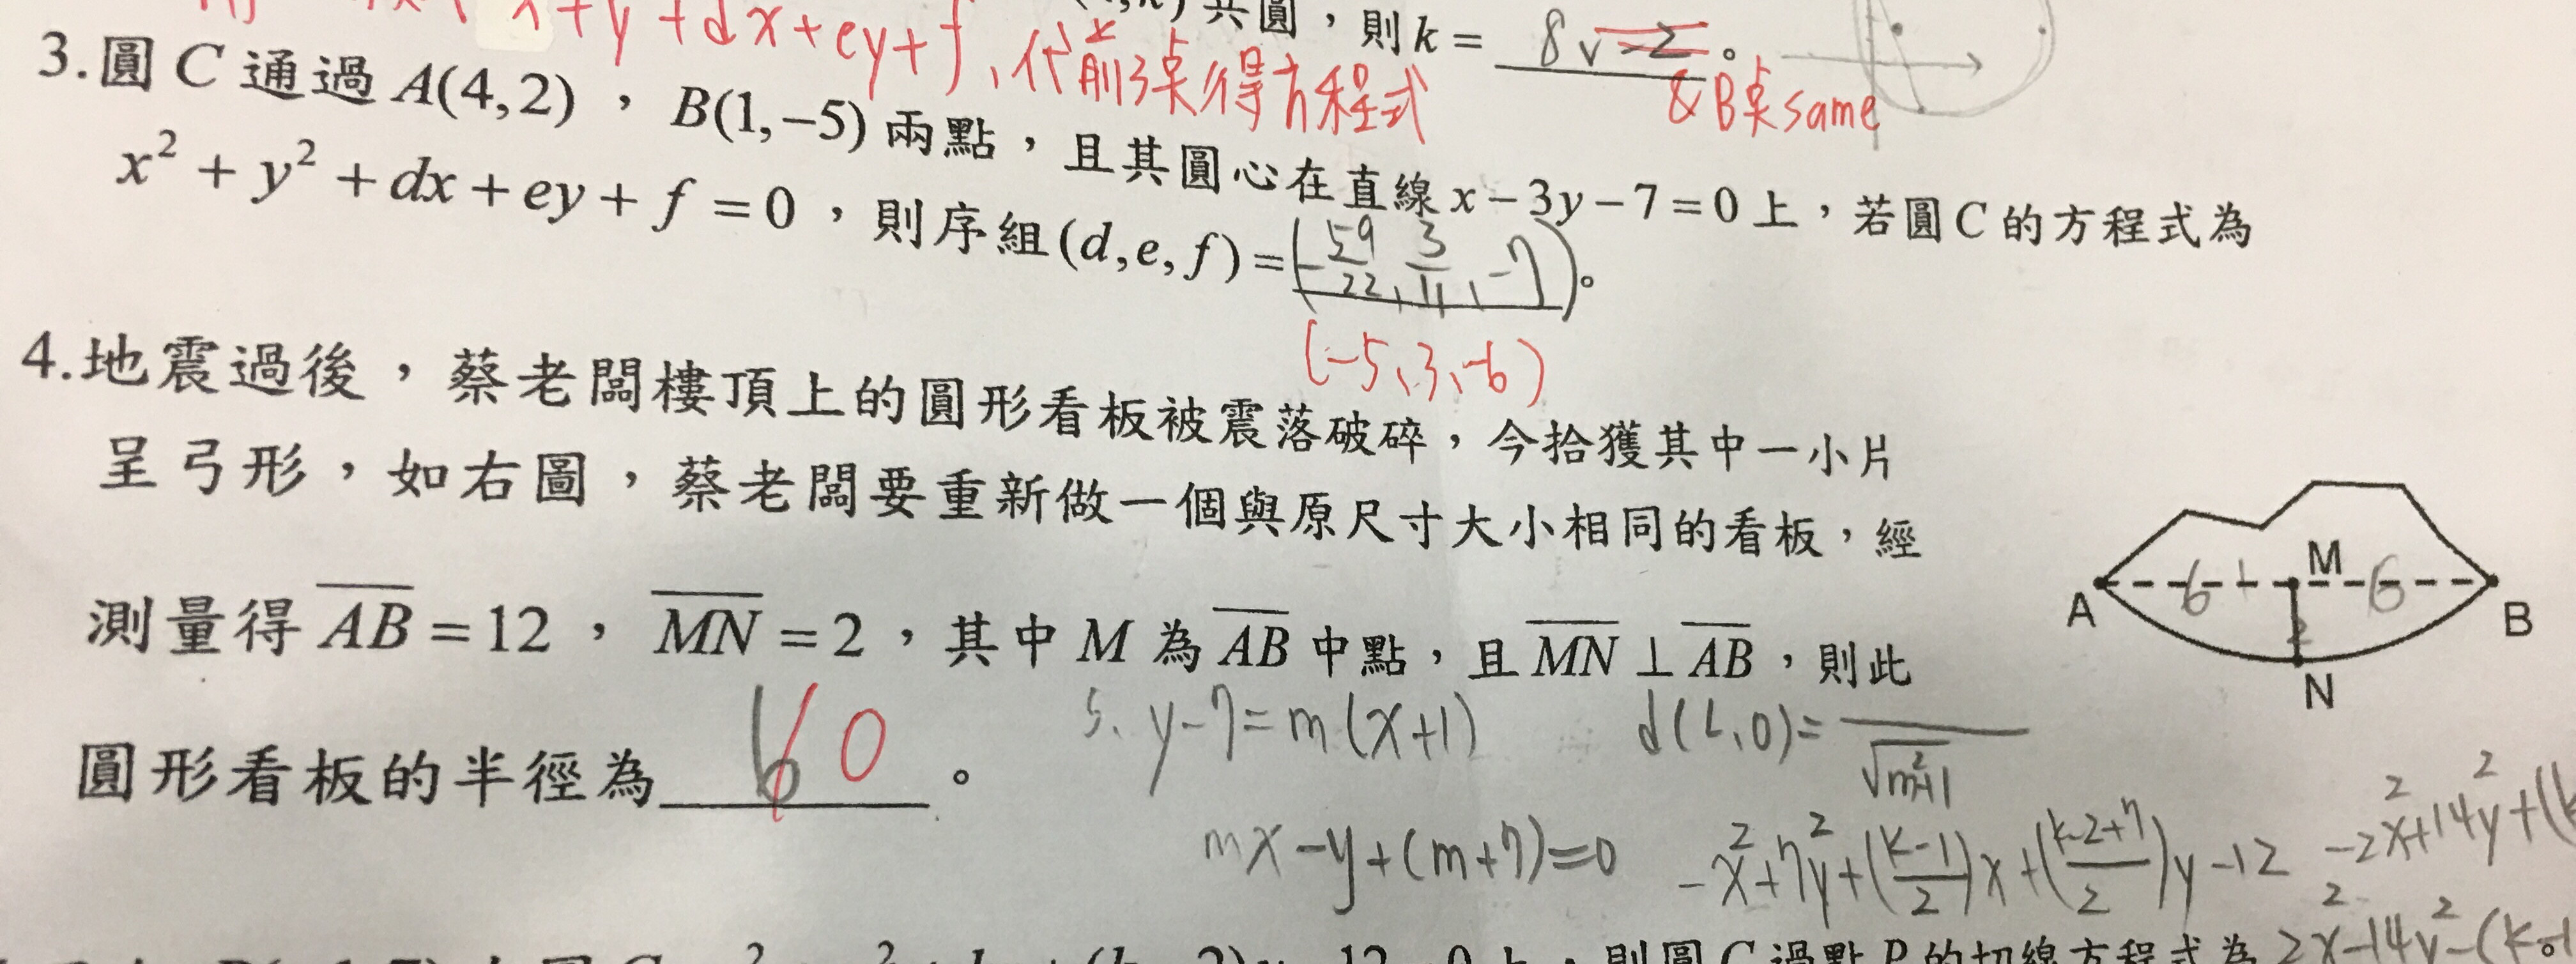 x+y+dx+ey+f、代前3点得方程式
共圓，則k = 8 v -2 。
& B点same
3.圓 C 通過 A(4,2) ， B(1,−5) 兩點，且其圓心在直線 x−3y−7=0 上，若圓C的方程式為
x²+y²+dx+ey+f=0，則序組(d,e,f)=(-59/22、3/11、-7)。
(-5、3、-6)
4.地震過後，蔡老闆樓頂上的圓形看板被震落破碎，今拾獲其中一小片
呈弓形，如右圖，蔡老闆要重新做一個與原尺寸大小相同的看板，經
測量得 AB=12 ， MN=2，其中 M 為 AB 中點，且 MN⊥AB，則此
圓形看板的半徑為 。
A 6 M 6 B
2
N
5、y-7=m(x+1)
d(L、0)= /√m²+1
mx-y+(m+7)=0
-x²+7y²+(k-1/2)x+(k-2+7/2)y-12
-2x²+14y²+(k
則圓C過點P的切線方程式為
2x²-14y²-(k-1